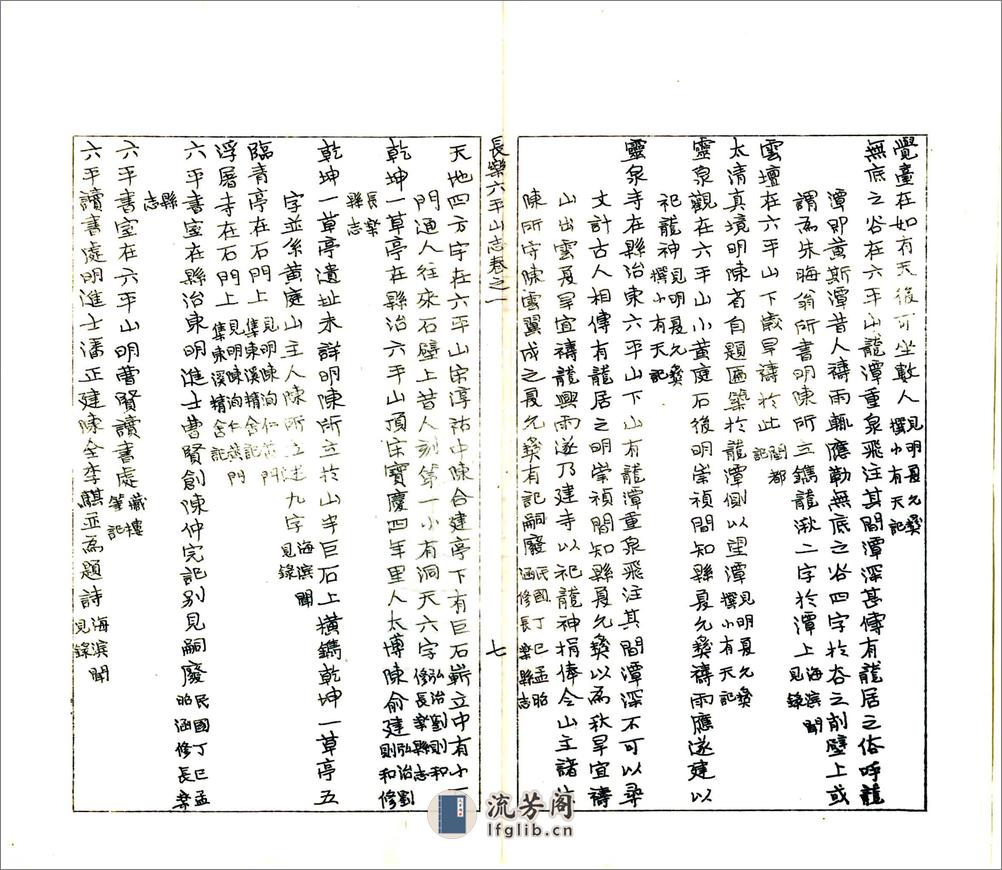 覺臺在如有天後可坐數人見明夏允彝撰小有天記
無底之谷在六平山龍潭重泉飛注其間潭深甚傳有龍居之俗呼龍
潭即黃斯潭昔人禱雨輒應勒無底之谷四字於谷之削壁上或
謂為朱晦翁所書明陳所立鐫龍湫二字於潭上海濱聞見錄
雲壇在六平山下歲旱禱於此閩都記
太清真境明陳省自題匾築於龍潭側以望潭見明夏允彝撰小有天記
靈泉觀在六平山小黃庭石後明崇禎間知縣夏允彝禱雨應遂建以
祀龍神見明夏允彝撰小有天記
靈泉寺在縣治東六平山下山有龍潭重泉飛注其間潭深不可以尋
丈計古人相傳有龍居之明崇禎間知縣夏允彝以為秋旱宜禱
山出雲夏旱宜禱龍興雨遂乃建寺以祀龍神捐俸令山主諸生
陳所守陳雲翼成之夏允彝有記嗣廢民國丁巳孟昭涵修長樂縣志
長樂六平山志卷之一
七
天地四方字在六平山宋淳祐中陳合建亭下有巨石嶄立中有小一
門通人往來石壁上昔人刻第一小有洞天六字弘治劉則和修長樂縣志
乾坤一草亭在縣治六平山頂宋寶慶四年里人太博陳俞建弘治劉則和修
長樂縣志
乾坤一草亭遺址未詳明陳所立於山半巨石上橫鐫乾坤一草亭五
字並系黃庭山主人陳所立述九字海濱聞見錄
臨青亭在石門上見明陳洵仁石門集東溪精舍記
浮屠寺在石門上見明陳洵仁石門集東溪精舍記
六平書室在縣治東明進士曹賢創陳仲完記別見嗣廢民國丁巳孟昭涵修長樂
縣志
六平書室在六平山明曹賢讀書處藏樓筆記
六平讀書處明進士潘正建陳全李騏並為題詩海濱聞見錄
流芳阁
lfglib.cn